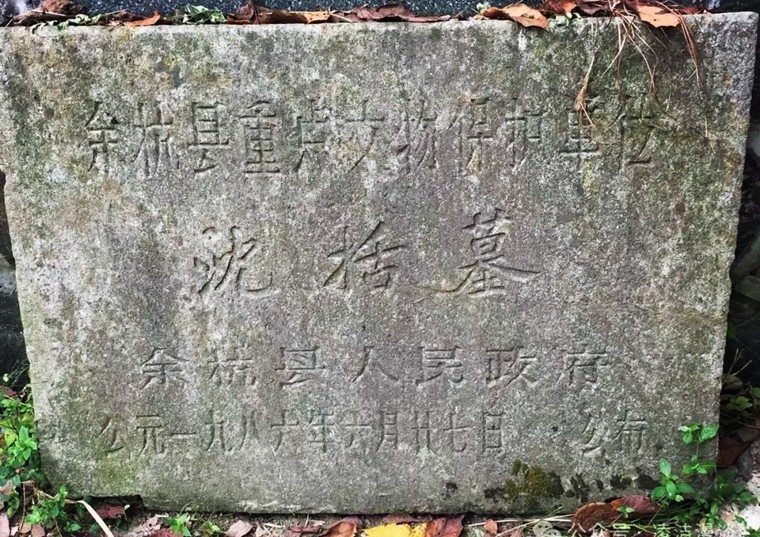 余杭县重点文物保护单位
沈括墓
余杭县人民政府
公元一九八六年六月廿七日 公布
公众号